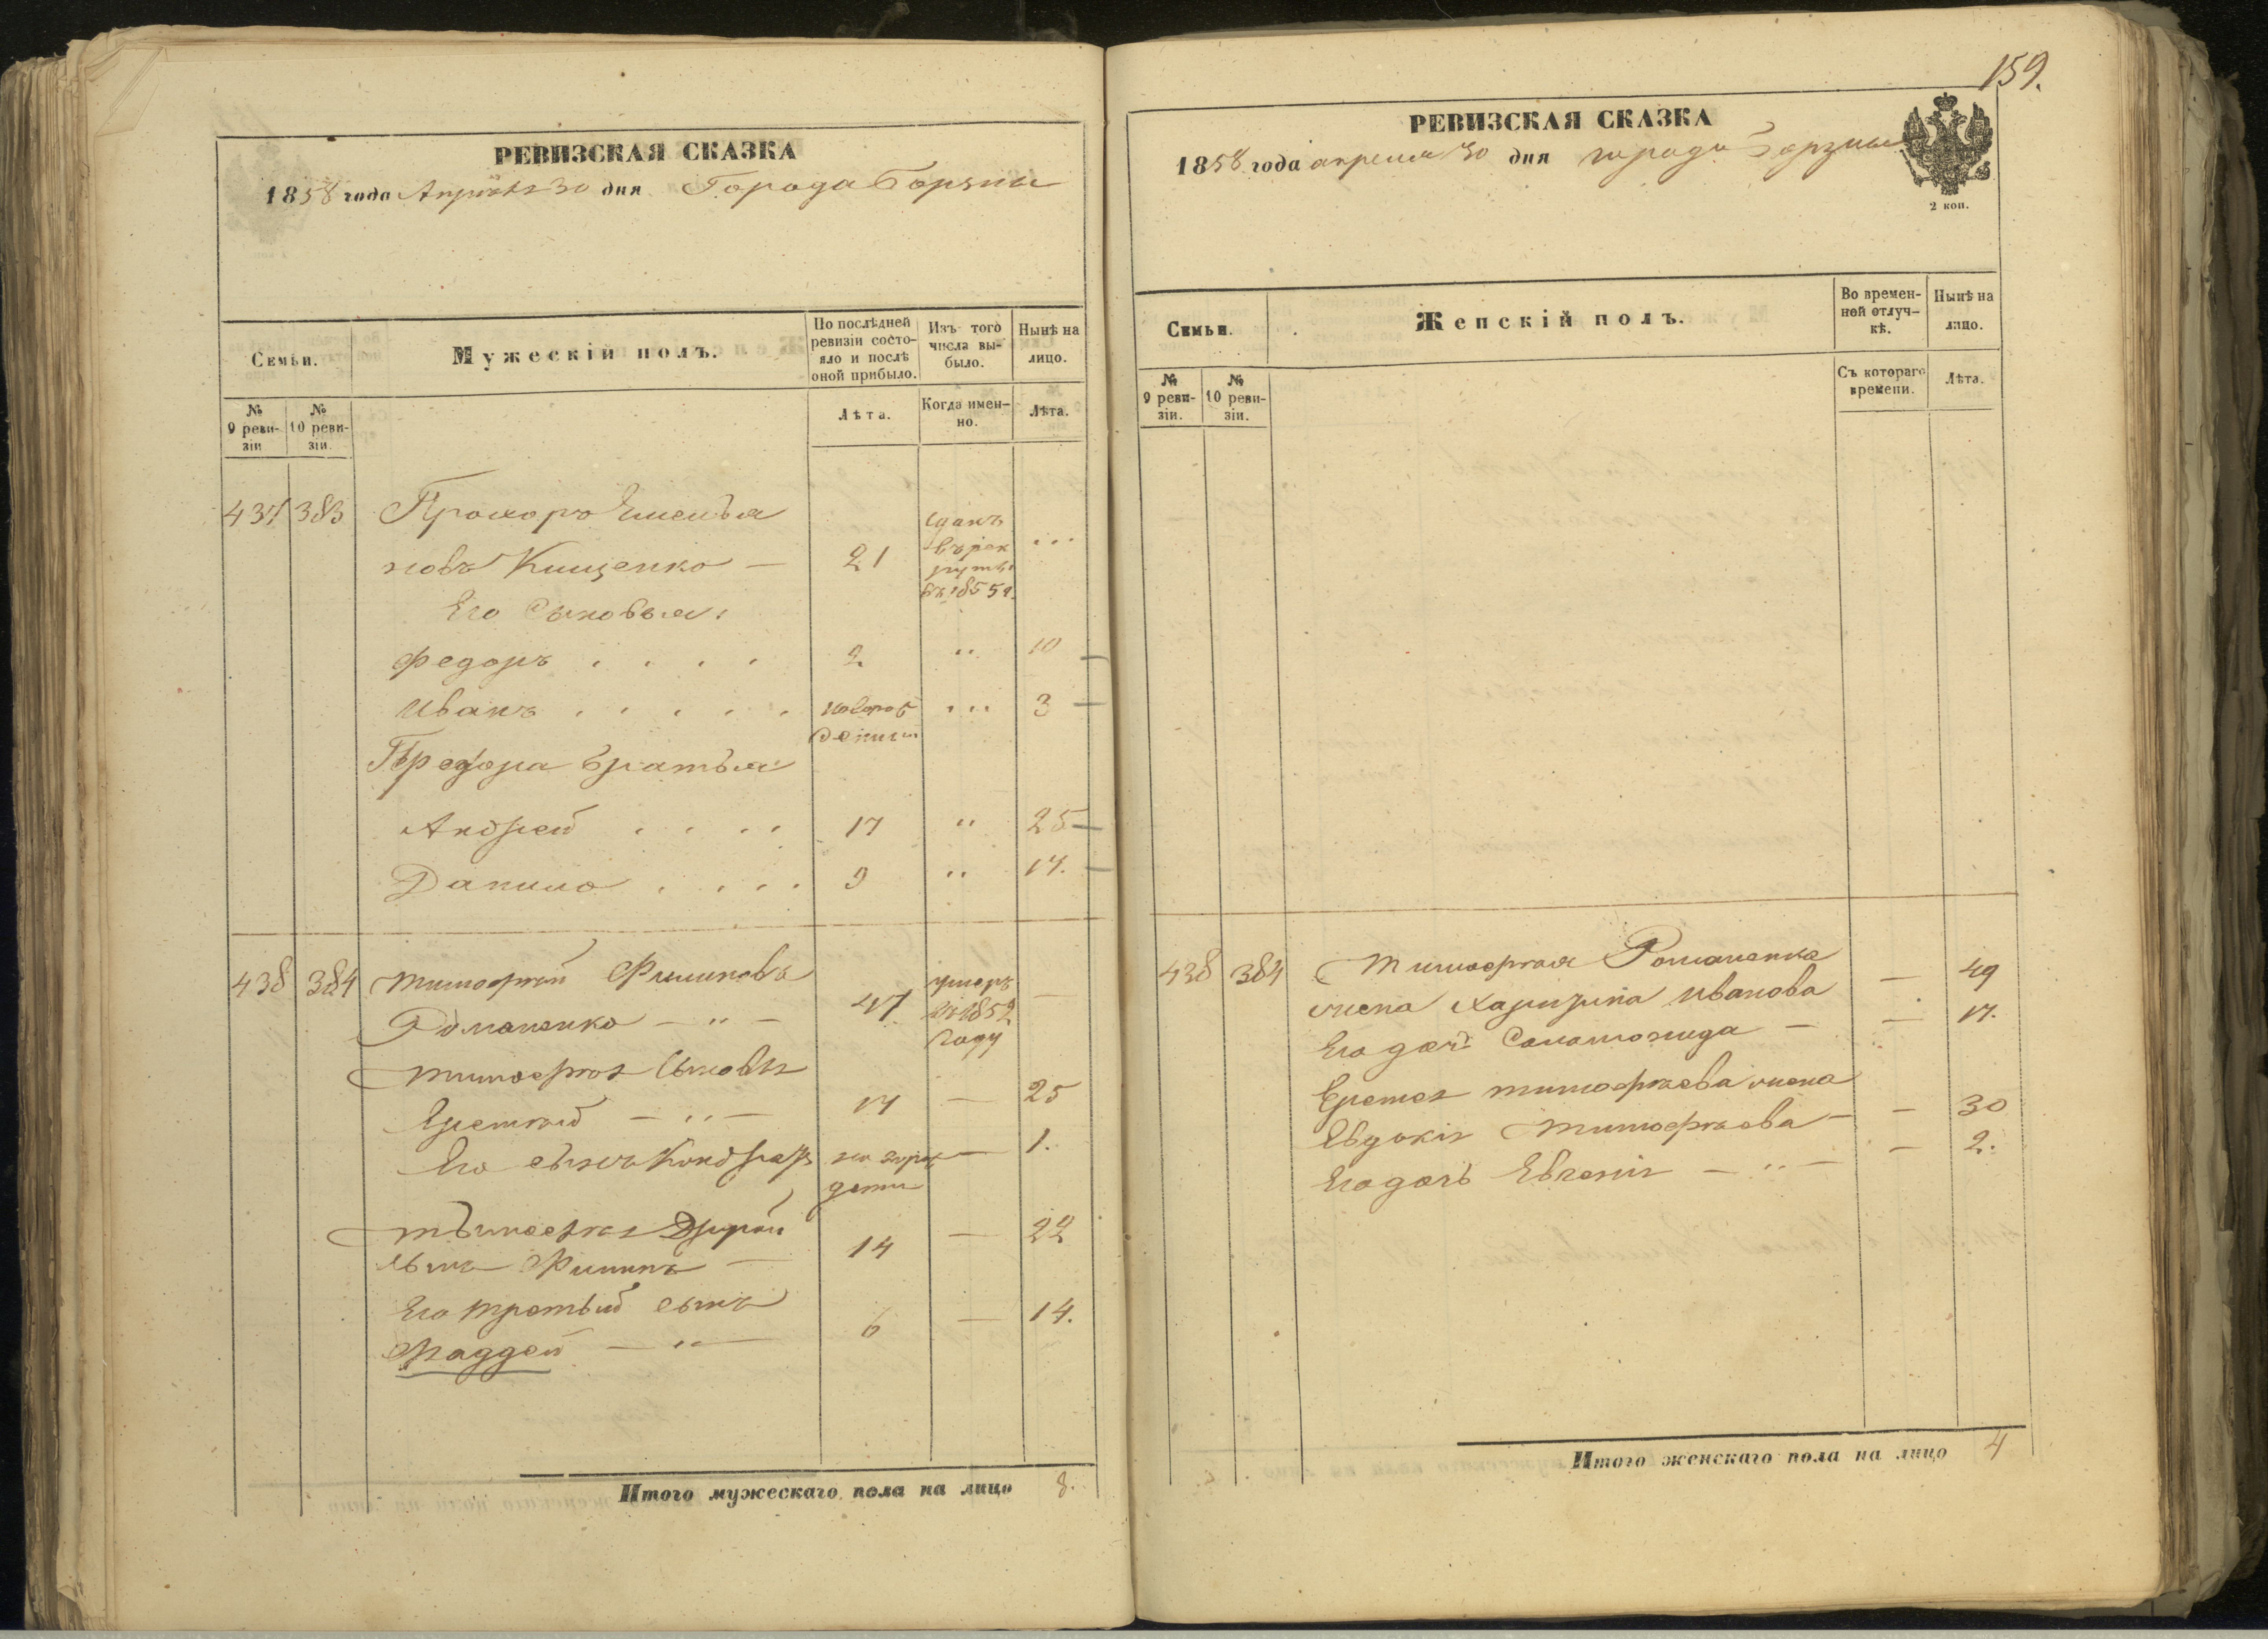 РЕВИЗСКАЯ СКАЗКА
1858 года Апрѣля 30 дня Города Борзны
Семьи.
Мужескій полъ.
По послѣдней ревизіи состояло и послѣ оной прибыло.
Изъ того числа выбыло.
Нынѣ на лицо.
№ 9 ревизіи
№ 10 ревизіи.
Лѣта.
Когда именно.
Лѣта.
437 383 Прохоръ Емелья
новъ Кищенко — 21 сданъ въ рек руты въ 1855 г. ...
Его Сыновья:
Федоръ . . . . 2 " 10
Иванъ . . . . . новорож денный ... 3
братья
Андрей . . . . 17 " 25
Данило . . . . 9 " 17.
438 384 Тимофѣй Филиповъ
Романенко — " — 47 умеръ въ 1852 году —
Тимофѣя Сыновья
Еремѣй — " — 17 — 25
Его сынъ Кондрат — 1.
Тимофѣя Другой
сынъ Филипъ — 14 — 22
Его третый сынъ
Фаддей — " — 6 — 14.
Итого мужескаго пола на лицо 8.
159.
РЕВИЗСКАЯ СКАЗКА
1858 года апреля 30 дня города Борзны
2 коп.
Семьи.
Женскій полъ.
Во временной отлучкѣ.
Нынѣ на лицо.
№ 9 ревизіи.
№ 10 ревизіи.
Съ котораго времени.
Лѣта.
438 384 Тимофѣя Романенка
жена Иванова — 49
Его дочь Соломонида — — 17.
Еремея тимофѣева жена
Евдокія Тимофѣева — — 30
Его дочь Евгенія — " — — 2.
Итого женскаго пола на лицо 4